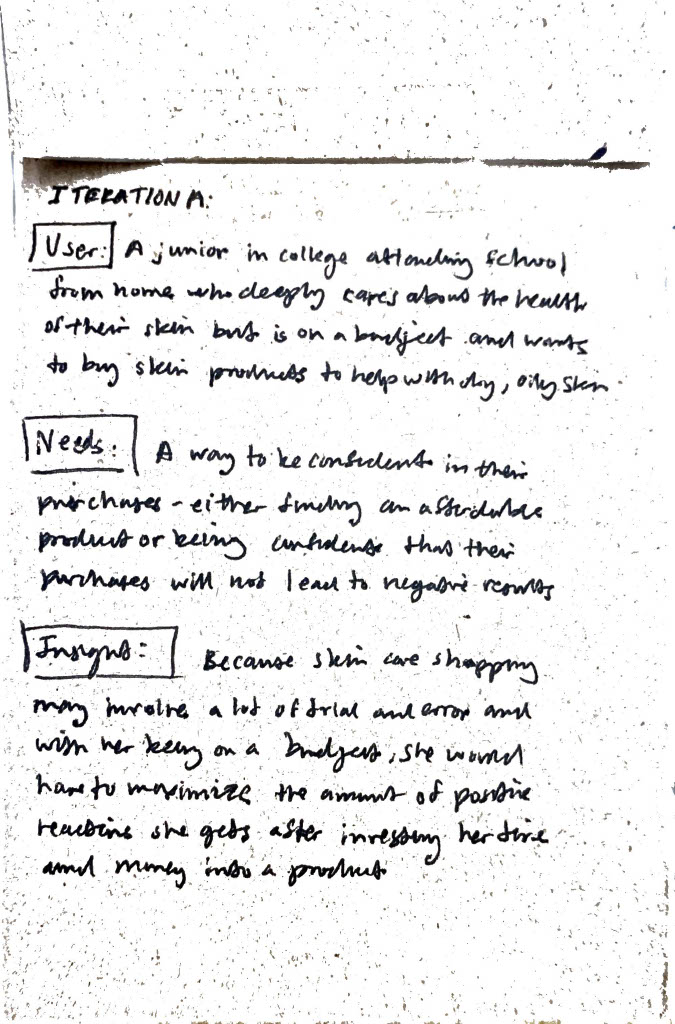 ITERATION A:
User: A junior in college attending school
from home who deeply cares about the health
of their skin but is on a budject and wants
to buy skin products to help with dry, oily skin.
Needs: A way to be confident in their
purchases - either finding an affordable
product or being confident that their
purchases will not lead to negative results
Insight: Because skin care shopping
may involve a lot of trial and error and
with her being on a budject, she would
have to maximize the amount of positive
reactions she gets after investing her time
and money into a product